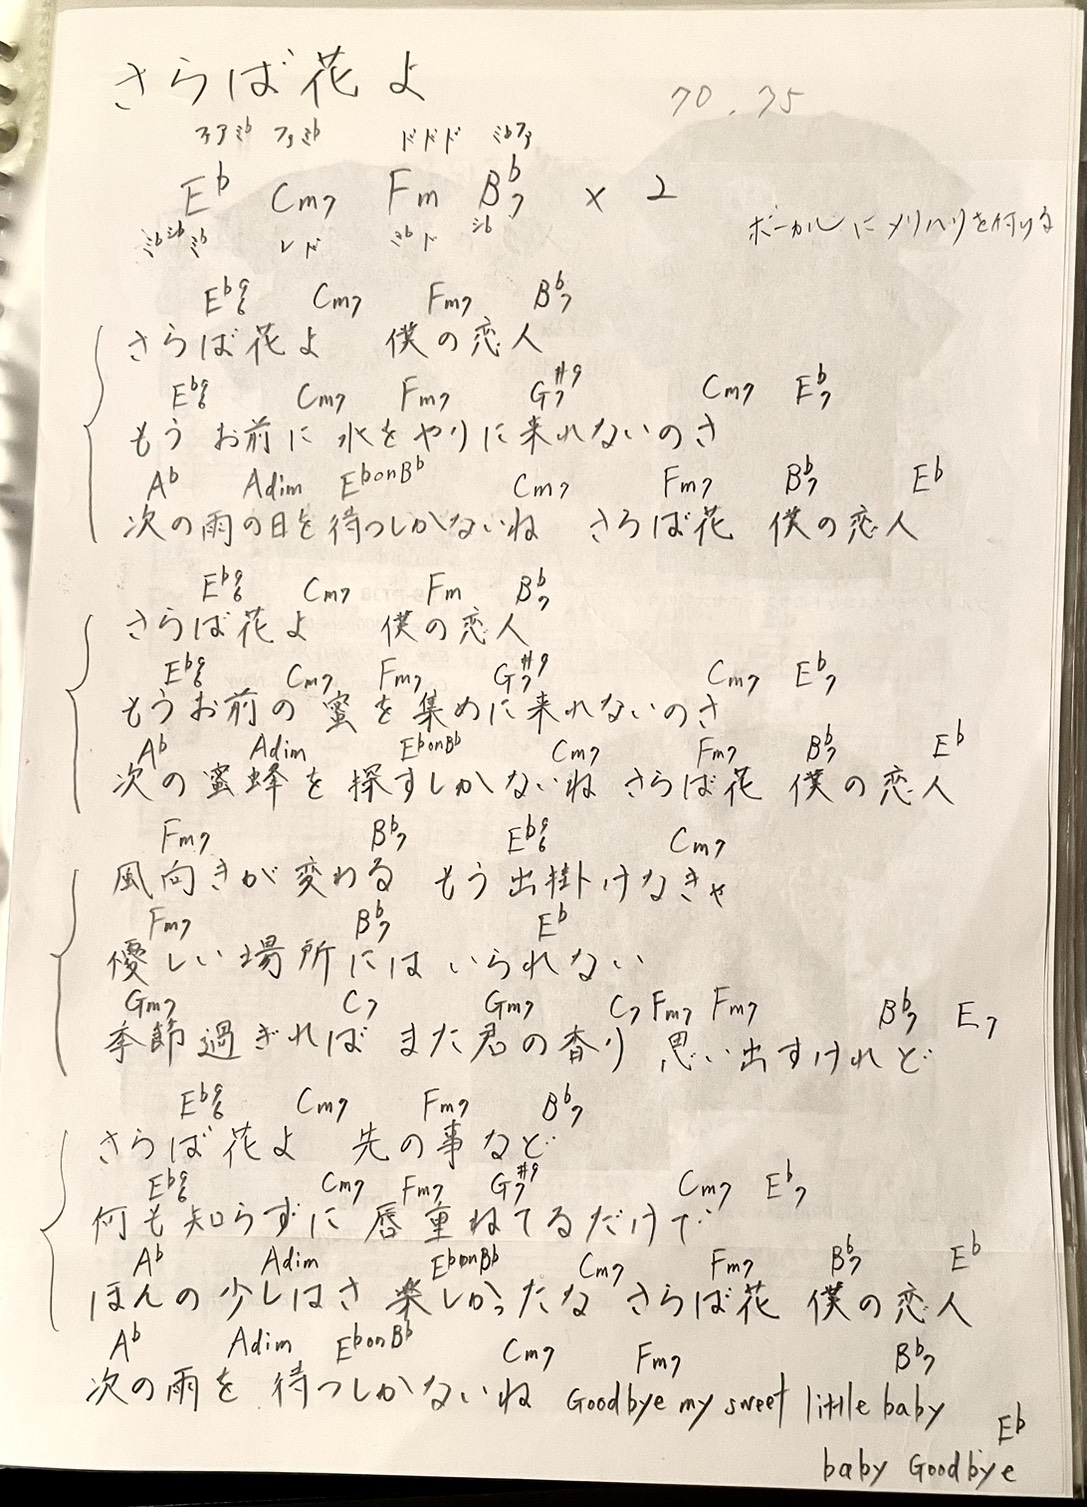 さらば花よ
70.75
ファミb ファミb ドドド ミbファ
Eb Cm7 Fm Bb7 × 2
ミbシbミb レド ミbド シb
ボーカルにメリハリを付ける
Eb96 Cm7 Fm7 Bb7
さらば花よ 僕の恋人
Eb96 Cm7 Fm7 G7#9 Cm7 Eb7
もうお前に水をやりに来れないのさ
Ab Adim EbonBb Cm7 Fm7 Bb7 Eb
次の雨の日を待つしかないね さらば花 僕の恋人
Eb96 Cm7 Fm Bb7
さらば花よ 僕の恋人
Eb96 Cm7 Fm7 G7#9 Cm7 Eb7
もうお前の蜜を集めに来れないのさ
Ab Adim EbonBb Cm7 Fm7 Bb7 Eb
次の蜜蜂を探すしかないね さらば花 僕の恋人
Fm7 Bb7 Eb96 Cm7
風向きが変わる もう出掛けなきゃ
Fm7 Bb7 Eb
優しい場所にはいられない
Gm7 C7 Gm7 C7 Fm7 Fm7 Bb7 E7
季節過ぎれば また君の香り 思い出すけれど
Eb96 Cm7 Fm7 Bb7
さらば花よ 先の事など
Eb96 Cm7 Fm7 G7#9 Cm7 Eb7
何も知らずに唇重ねてるだけで
Ab Adim EbonBb Cm7 Fm7 Bb7 Eb
ほんの少しはさ 楽しかったな さらば花 僕の恋人
Ab Adim EbonBb Cm7 Fm7 Bb7
次の雨を待つしかないね Goodbye my sweet little baby
Eb
baby Goodbye